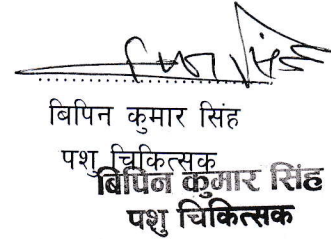 बिपिन कुमार सिंह
पशु चिकित्सक
बिपिन कुमार सिंह
पशु चिकित्सक